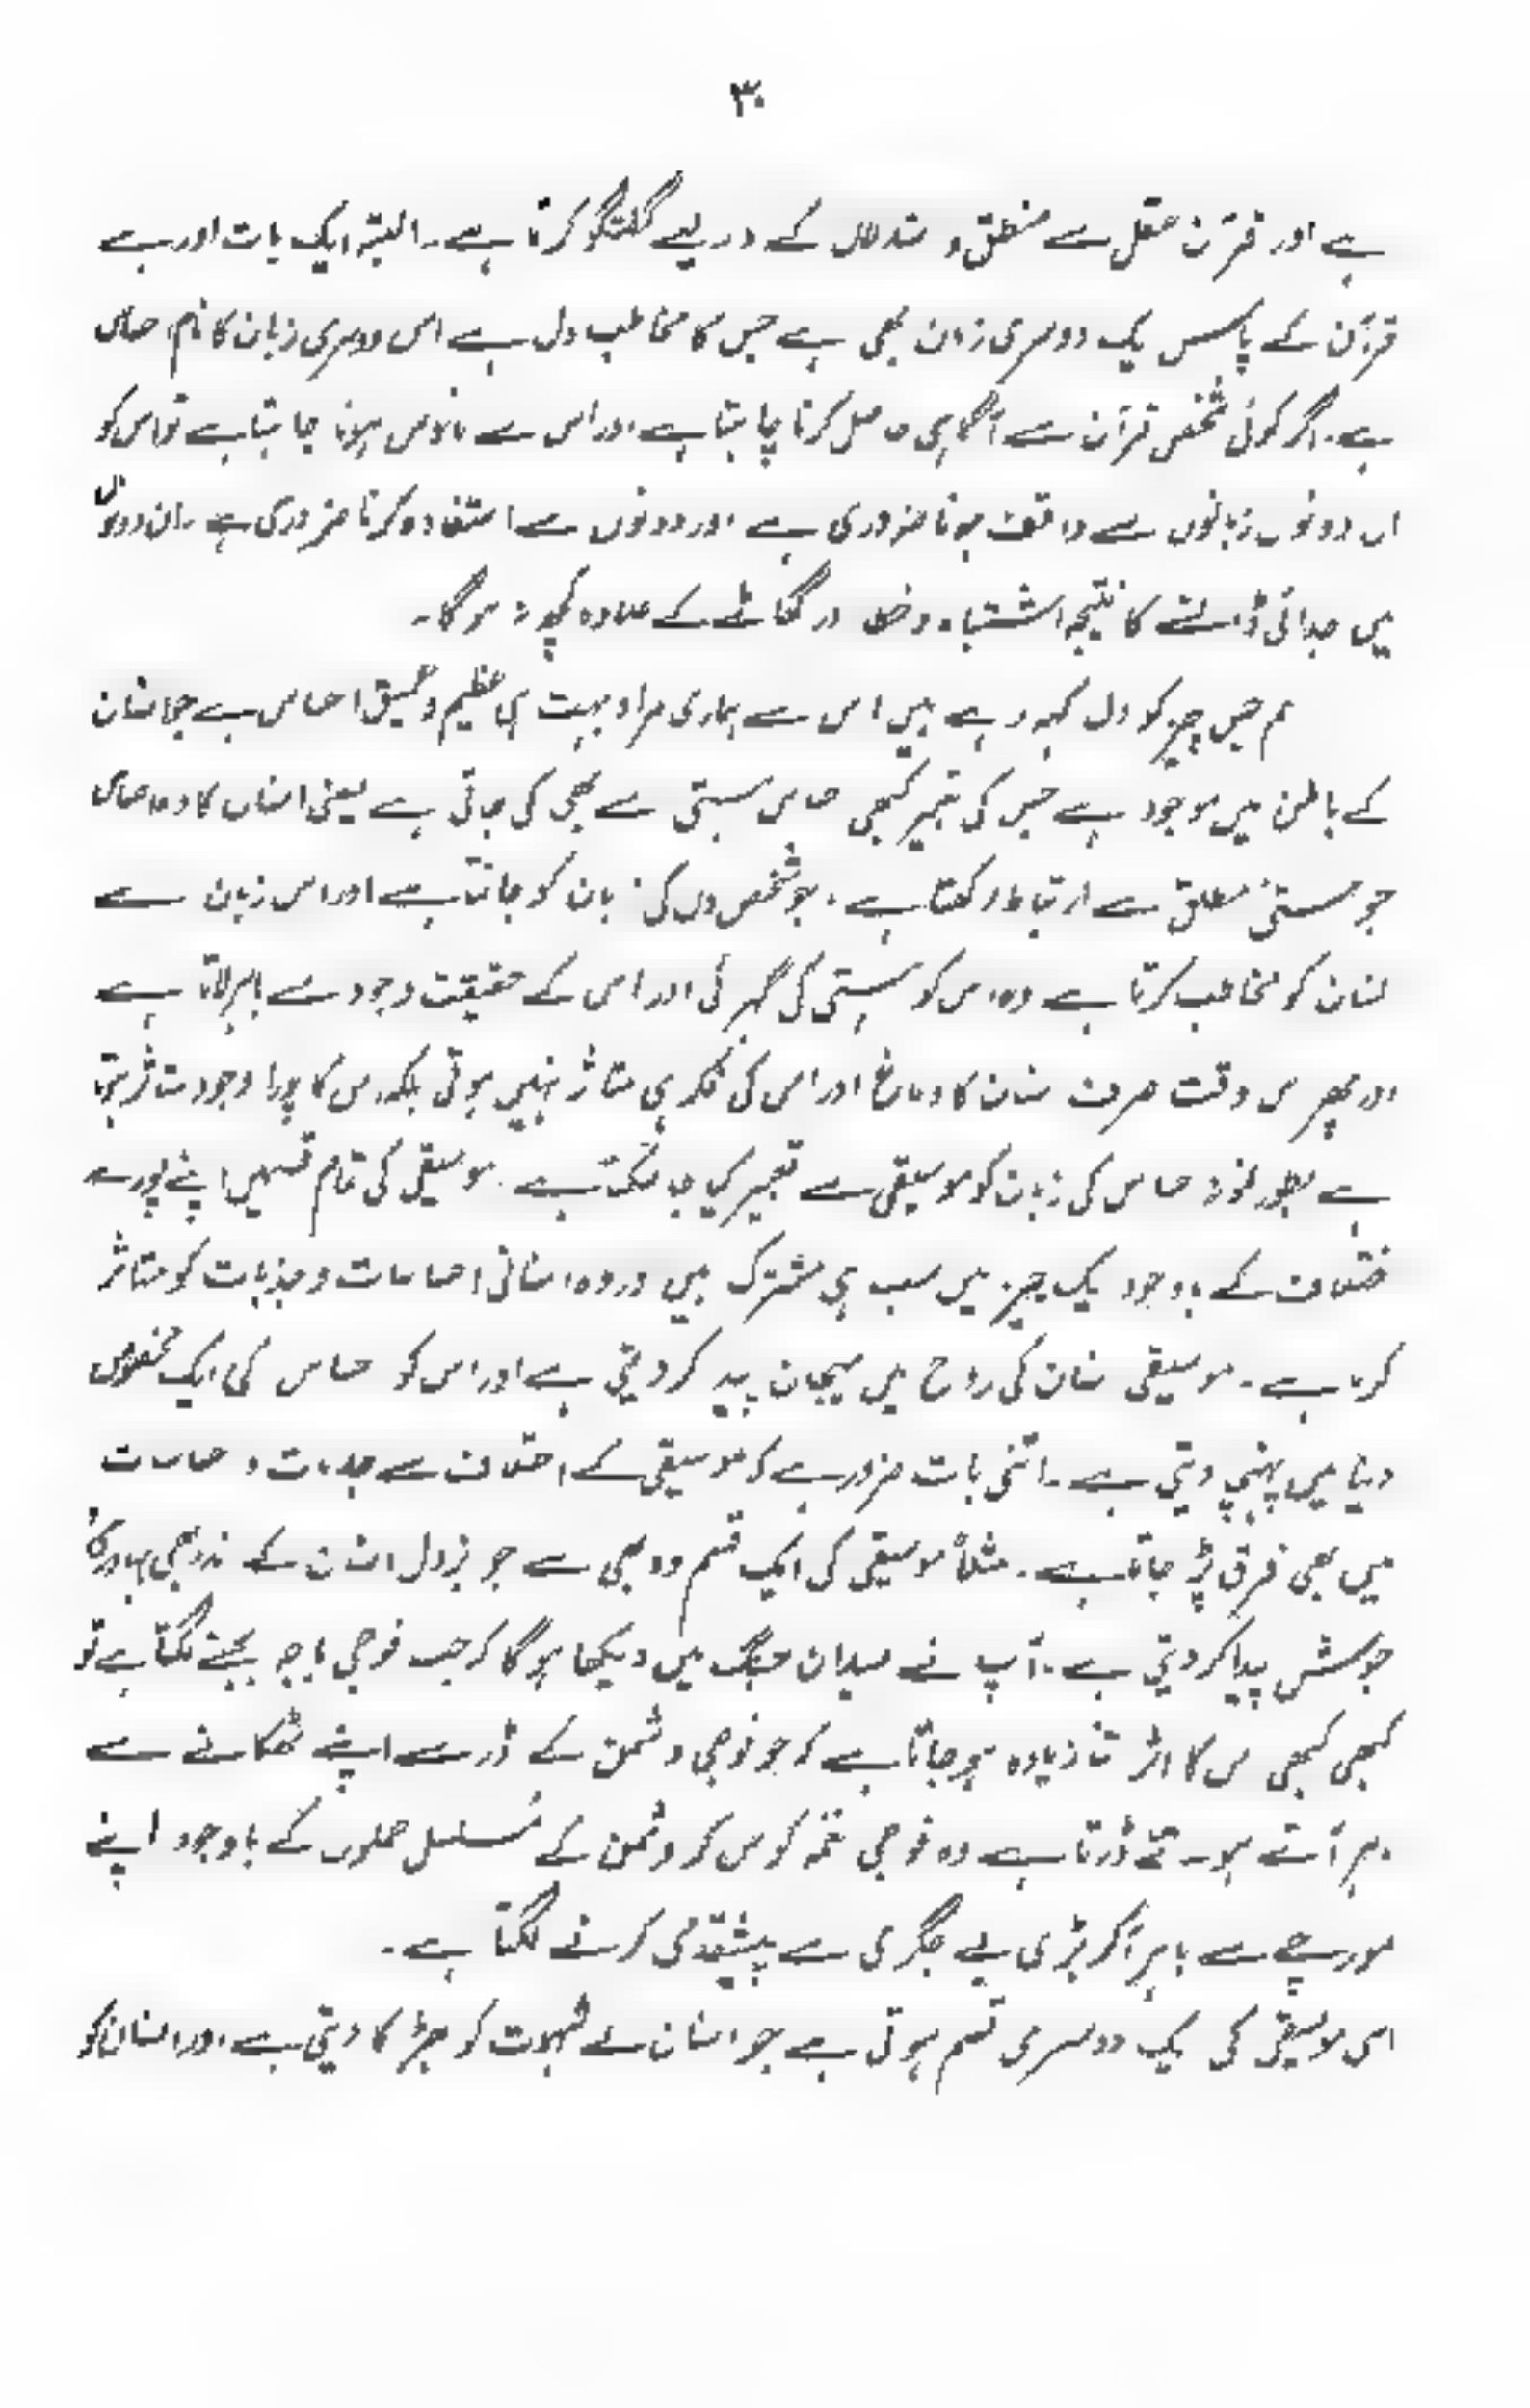 ۳۰
ہے اور قرآن عقل سے منطق و استدلال کے ذریعے گفتگو کرتا ہے۔ البتہ ایک بات اور ہے
قرآن کے پاس ایک دوسری زبان بھی ہے جس کا مخاطب دل ہے اس دوسری زبان کا نام احساس
ہے۔ اگر کوئی شخص قرآن سے آگاہی حاصل کرنا چاہتا ہے اور اس سے مانوس ہونا چاہتا ہے تو اس کو
ان دونوں زبانوں سے واقف ہونا ضروری ہے اور دونوں سے استفادہ کرنا ضروری ہے۔ ان دونوں
میں جدائی ڈالنے کا نتیجہ اشتباہ و خطا اور گھاٹے کے علاوہ کچھ نہ ہوگا۔
ہم جس چیز کو دل کہہ رہے ہیں اس سے ہماری مراد بہت ہی عظیم و عمیق احساس ہے جو انسان
کے باطن میں موجود ہے جس کی تعبیر کبھی احساس ہستی سے بھی کی جاتی ہے یعنی انسان کا وہ احساس
جو ہستیٔ مطلق سے ارتباط رکھتا ہے۔ جو شخص دل کی زبان کو جانتا ہے اور اس زبان سے
انسان کو مخاطب کرتا ہے وہ اس کو ہستی کی گہرائی اور اس کے حقیقت وجود سے باہر لاتا ہے
اور پھر اس وقت صرف انسان کا دماغ اور اس کی فکر ہی متاثر نہیں ہوتی بلکہ اس کا پورا وجود متاثر ہوتا
ہے بطور نمونہ احساس کی زبان کو موسیقی سے تعبیر کیا جا سکتا ہے۔ موسیقی کی تمام قسمیں اپنے پورے
اختلاف کے باوجود ایک چیز میں سب ہی مشترک ہیں اور وہ انسانی احساسات و جذبات کو متاثر
کرنا ہے۔ موسیقی انسان کی روح میں ہیجان پیدا کر دیتی ہے اور اس کو احساس کی ایک مخصوص
دنیا میں پہنچا دیتی ہے۔ اتنی بات ضرور ہے کہ موسیقی کے اختلاف سے جذبات و احساسات
میں بھی فرق پڑ جاتا ہے۔ مثلاً موسیقی کی ایک قسم وہ بھی ہے جو بزدل انسان کے اندر بھی بہادری کا
جوش پیدا کر دیتی ہے۔ آپ نے میدان جنگ میں دیکھا ہوگا کہ جب فوجی باجہ بجنے لگتا ہے تو
کبھی کبھی اس کا اثر اتنا زیادہ ہو جاتا ہے کہ جو فوجی دشمن کے ڈر سے اپنے ٹھکانے سے
باہر آتے ہوئے ڈرتا ہے وہ فوجی نغمہ کو سن کر دشمن کے مسلسل حملوں کے باوجود اپنے
مورچے سے باہر آکر بڑی بے جگری سے پیشقدمی کرنے لگتا ہے۔
اسی موسیقی کی ایک دوسری قسم ہوتی ہے جو انسان کے شہوت کو بھڑکا دیتی ہے اور انسان کو